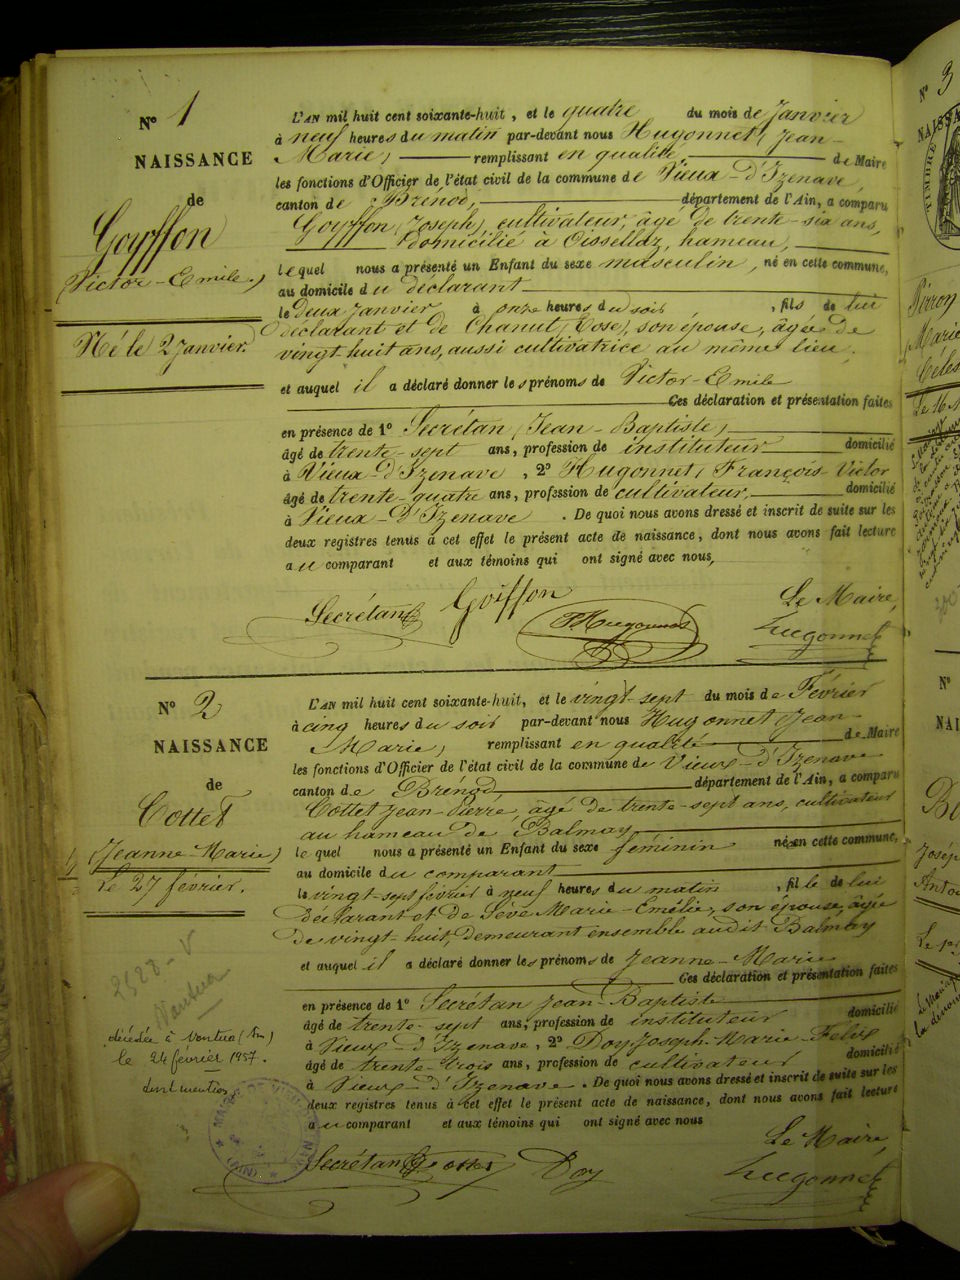 N° 1
NAISSANCE
de
Goyffon
(Victor-Emile,)
Né le 2 Janvier.
L'AN mil huit cent soixante-huit, et le quatre du mois de Janvier
à neuf heures du matin par-devant nous Hugonnet (Jean-
Marie) remplissant en qualité de Maire
les fonctions d'Officier de l'état civil de la commune de Vieux-d'Izenave,
canton de Brénod, département de l'Ain, a comparu
Goyffon (Joseph), cultivateur, âgé de trente-six ans,
domicilié à Oisselaz, hameau,
lequel nous a présenté un Enfant du sexe masculin, né en cette commune,
au domicile du déclarant
le deux Janvier à onze heures du soir, fils de lui
déclarant et de Chanut (Rose), son épouse, âgée de
vingt-huit ans, aussi cultivatrice au même lieu,
et auquel il a déclaré donner les prénoms de Victor-Emile
Ces déclaration et présentation faites
en présence de 1° Secrétan (Jean-Baptiste)
âgé de trente-sept ans, profession de instituteur domicilié
à Vieux-d'Izenave, 2° Hugonnet, François-Victor
âgé de trente-quatre ans, profession de cultivateur, domicilié
à Vieux-d'Izenave. De quoi nous avons dressé et inscrit de suite sur les
deux registres tenus à cet effet le présent acte de naissance, dont nous avons fait lecture
au comparant et aux témoins qui ont signé avec nous,
Secrétan Goiffon Hugonnet
Le Maire,
Hugonnet
N° 2
NAISSANCE
de
Cottet
(Jeanne-Marie)
Le 27 février.
décédée à (Ain)
le 24 février 1957.
dont mention
L'AN mil huit cent soixante-huit, et le vingt-sept du mois de Février
à cinq heures du soir par-devant nous Hugonnet (Jean-
Marie) remplissant en qualité de Maire
les fonctions d'Officier de l'état civil de la commune de Vieux-d'Izenave
canton de Brénod, département de l'Ain, a comparu
Cottet Jean-Pierre, âgé de trente-sept ans, cultivateur
au hameau de Balmay
le quel nous a présenté un Enfant du sexe féminin né en cette commune,
au domicile du comparant
le vingt-sept février à neuf heures du matin, fille de lui
déclarant et de Sève Marie-Emélie, son épouse, âgée
de vingt-huit, demeurant ensemble audit Balmay
et auquel il a déclaré donner les prénoms de Jeanne-Marie
Ces déclaration et présentation faites
en présence de 1° Secrétan Jean-Baptiste
âgé de trente-sept ans, profession de instituteur domicilié
à Vieux-d'Izenave, 2° Doy Joseph-Marie-Félix
âgé de trente-trois ans, profession de cultivateur domicilié
à Vieux-d'Izenave. De quoi nous avons dressé et inscrit de suite sur les
deux registres tenus à cet effet le présent acte de naissance, dont nous avons fait lecture
au comparant et aux témoins qui ont signé avec nous
Secrétan Cottet Doy
Le Maire,
Hugonnet
N° 3